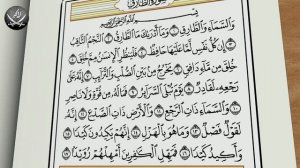 سورة الطارق
بسم الله الرحمن الرحيم
والسماء والطارق ۝ وما أدراك ما الطارق ۝ النجم الثاقب
۝ إن كل نفس لما عليها حافظ ۝ فلينظر الإنسان مم خلق ۝
خلق من ماء دافق ۝ يخرج من بين الصلب والترائب ۝ إنه على
رجعه لقادر ۝ يوم تبلى السرائر ۝ فما له من قوة ولا ناصر
۝ والسماء ذات الرجع ۝ والأرض ذات الصدع ۝ إنه
لقول فصل ۝ وما هو بالهزل ۝ إنهم يكيدون كيدا ۝
وأكيد كيدا ۝ فمهل الكافرين أمهلهم رويدا ۝